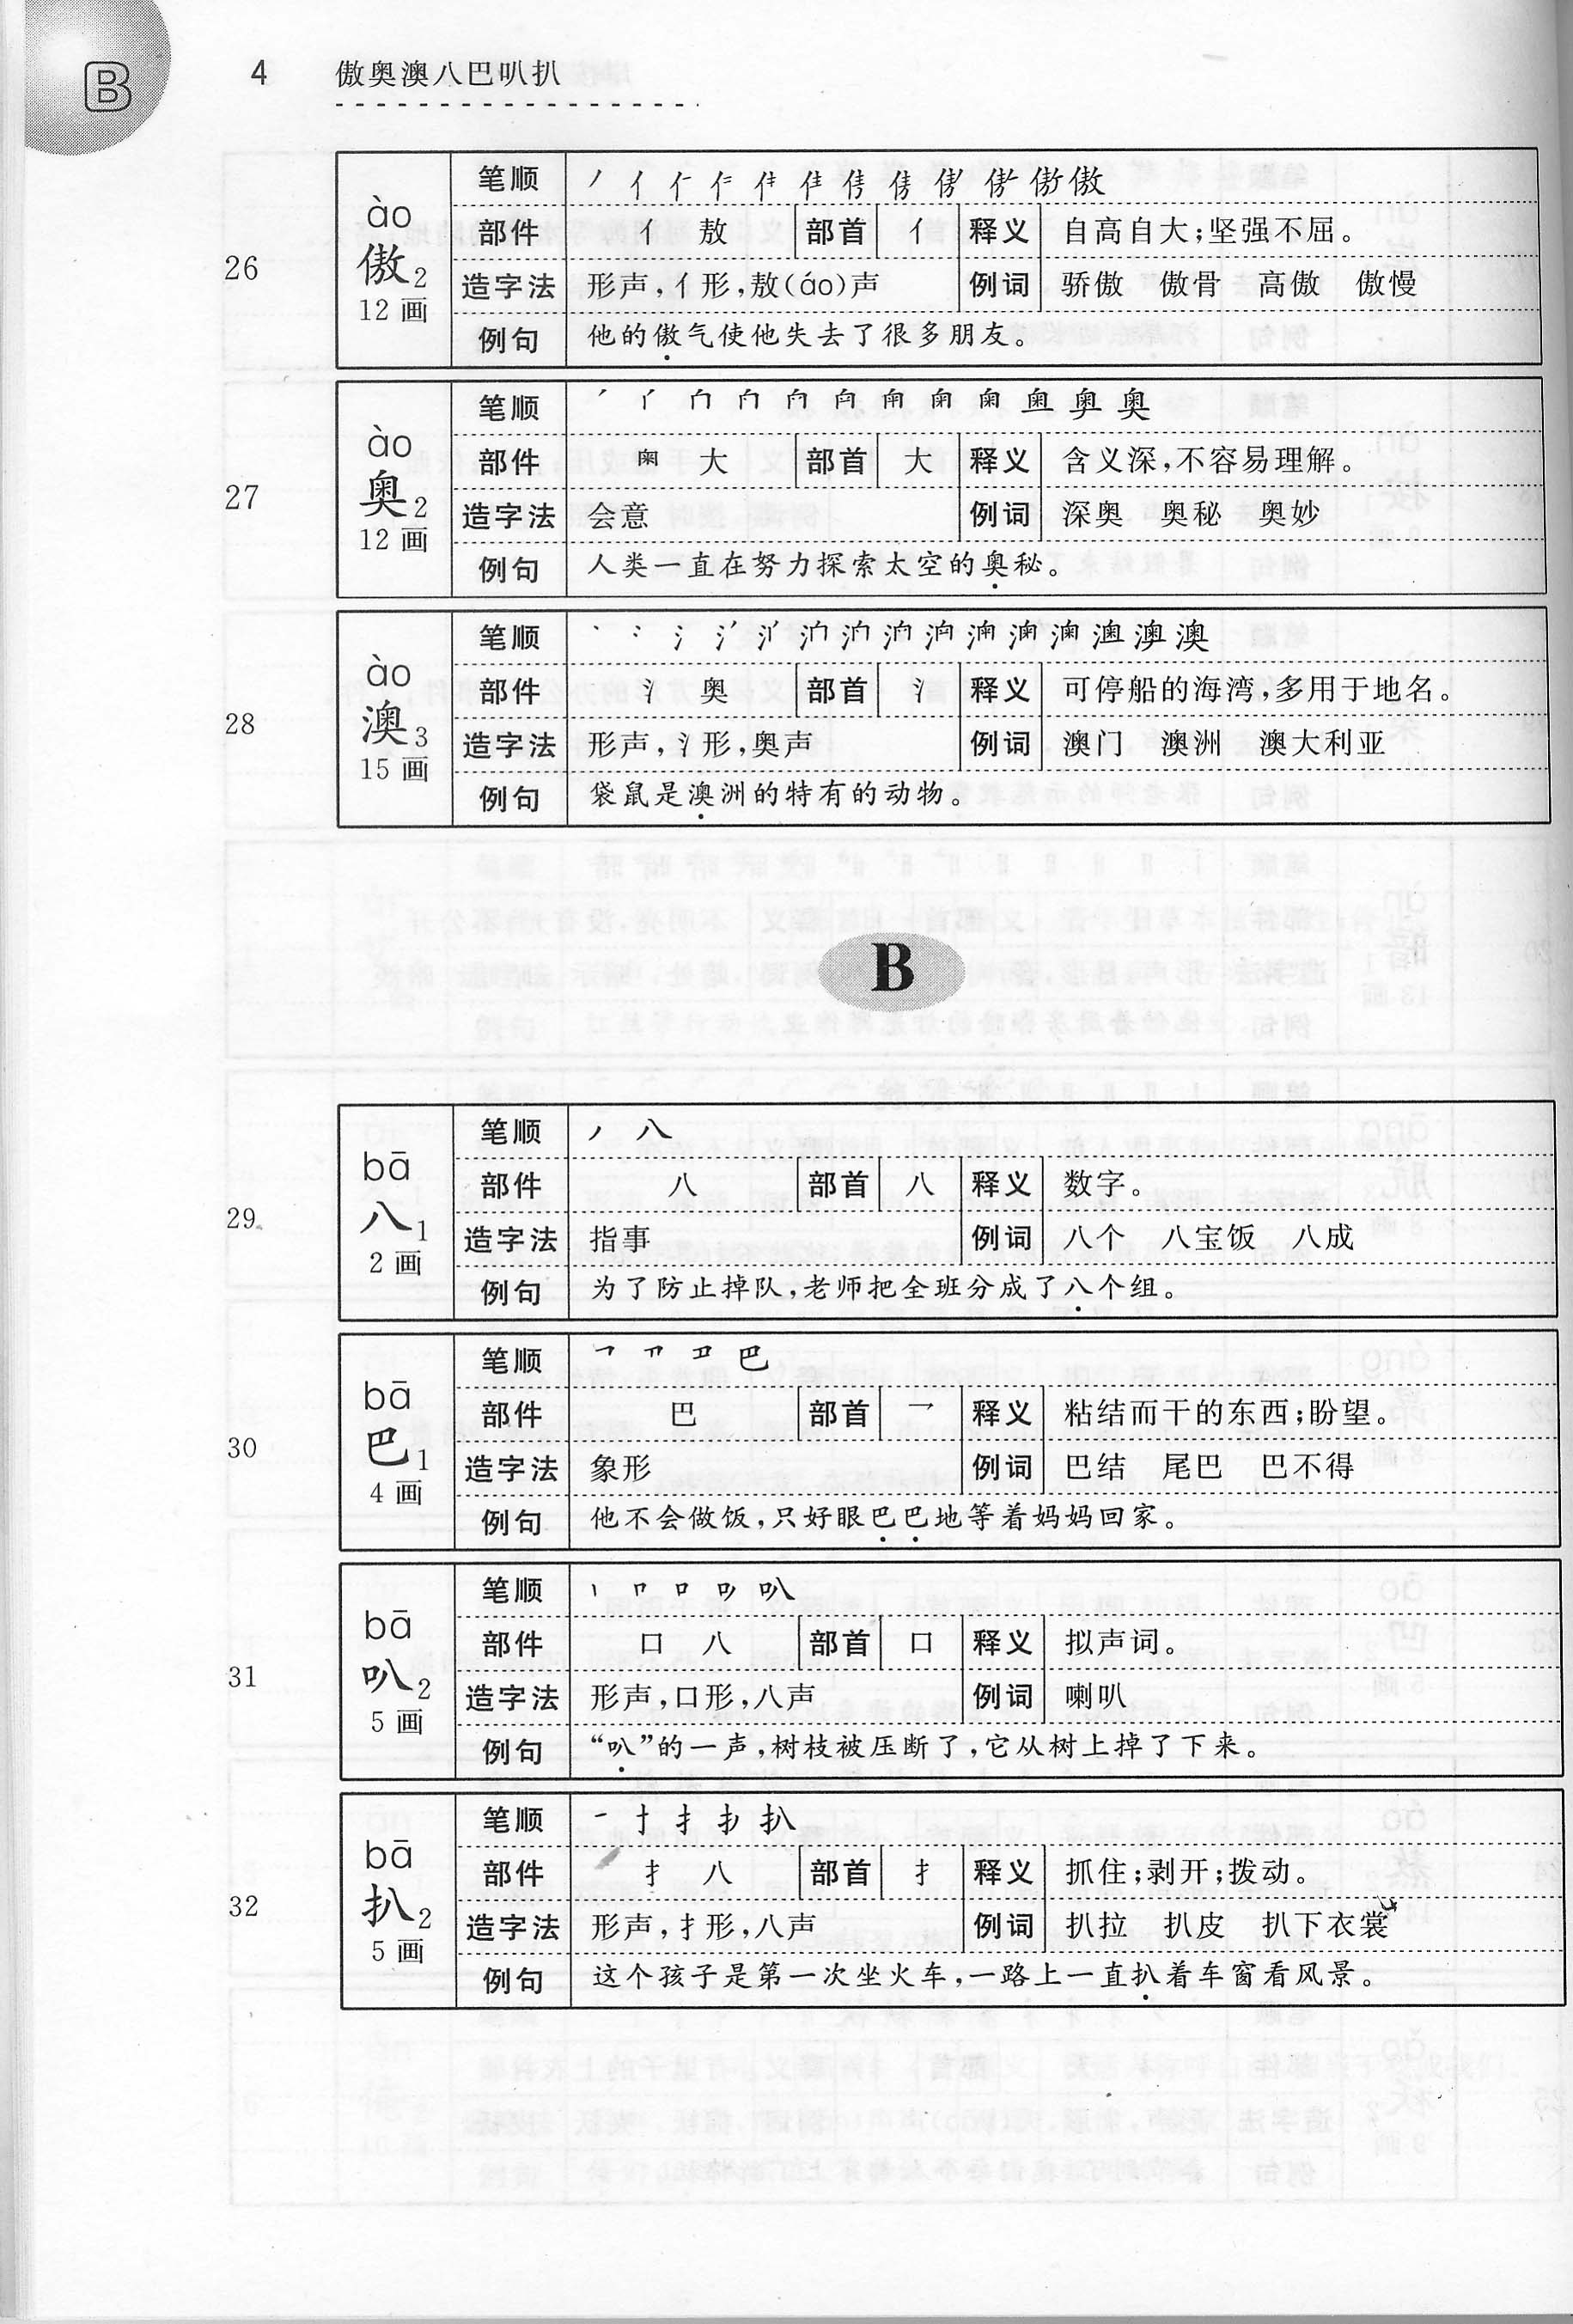 B
4 傲奥澳八巴叭扒
26
ào
傲2
12画
笔顺
部件 亻 敖 部首 亻 释义 自高自大；坚强不屈。
造字法 形声，亻形，敖(áo)声 例词 骄傲 傲骨 高傲 傲慢
例句 他的傲气使他失去了很多朋友。
27
ào
奥2
12画
笔顺
部件 大 部首 大 释义 含义深，不容易理解。
造字法 会意 例词 深奥 奥秘 奥妙
例句 人类一直在努力探索太空的奥秘。
28
ào
澳3
15画
笔顺
部件 氵 奥 部首 氵 释义 可停船的海湾，多用于地名。
造字法 形声，氵形，奥声 例词 澳门 澳洲 澳大利亚
例句 袋鼠是澳洲的特有的动物。
B
29
bā
八1
2画
笔顺 丿 八
部件 八 部首 八 释义 数字。
造字法 指事 例词 八个 八宝饭 八成
例句 为了防止掉队，老师把全班分成了八个组。
30
bā
巴1
4画
笔顺 巴
部件 巴 部首 乛 释义 粘结而干的东西；盼望。
造字法 象形 例词 巴结 尾巴 巴不得
例句 他不会做饭，只好眼巴巴地等着妈妈回家。
31
bā
叭2
5画
笔顺 叭
部件 口 八 部首 口 释义 拟声词。
造字法 形声，口形，八声 例词 喇叭
例句 “叭”的一声，树枝被压断了，它从树上掉了下来。
32
bā
扒2
5画
笔顺 扒
部件 扌 八 部首 扌 释义 抓住；剥开；拨动。
造字法 形声，扌形，八声 例词 扒拉 扒皮 扒下衣裳
例句 这个孩子是第一次坐火车，一路上一直扒着车窗看风景。